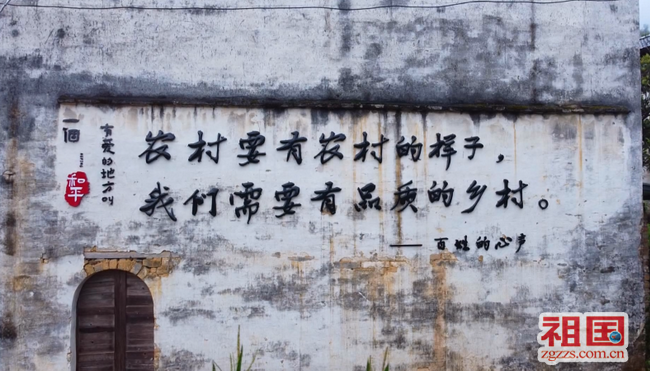 一個
有爱的地方叫
和平
农村要有农村的样子，
我们需要有品质的乡村。
——百姓的心声
祖国
zgzzs.com.cn